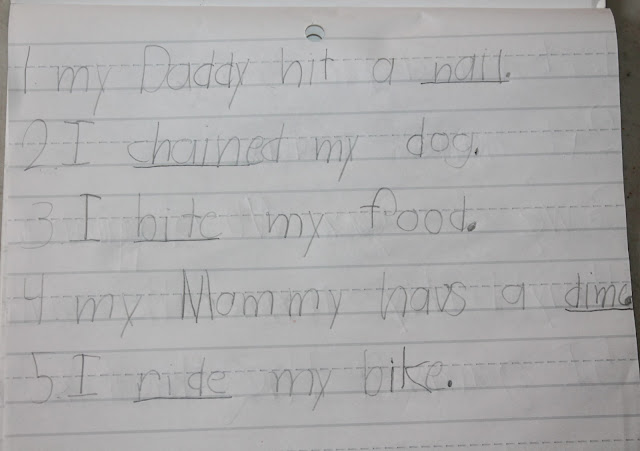 1 my Daddy hit a nail.
2. I chained my dog.
3 I bite my food.
4 my Mommy havs a dime
5. I ride my bike.